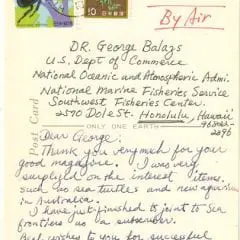 By Air
10
DR. George Balazs
U.S. Dept of Commerce
National Oceanic and Atmospheric Admi.
National Marine Fisheries Service
Southwest Fisheries Center.
2570 Dole St. Honolulu, Hawaii
2396
ONLY ONE EARTH
Post Card
Dear George:
Thank you very much for your
good magazine. I was very
surplised on the interest items.
such as sea turtles and new
in Australia.
I have just finished to joint to Sea
frontiers as a subscriber.
Best wishes to you for successful